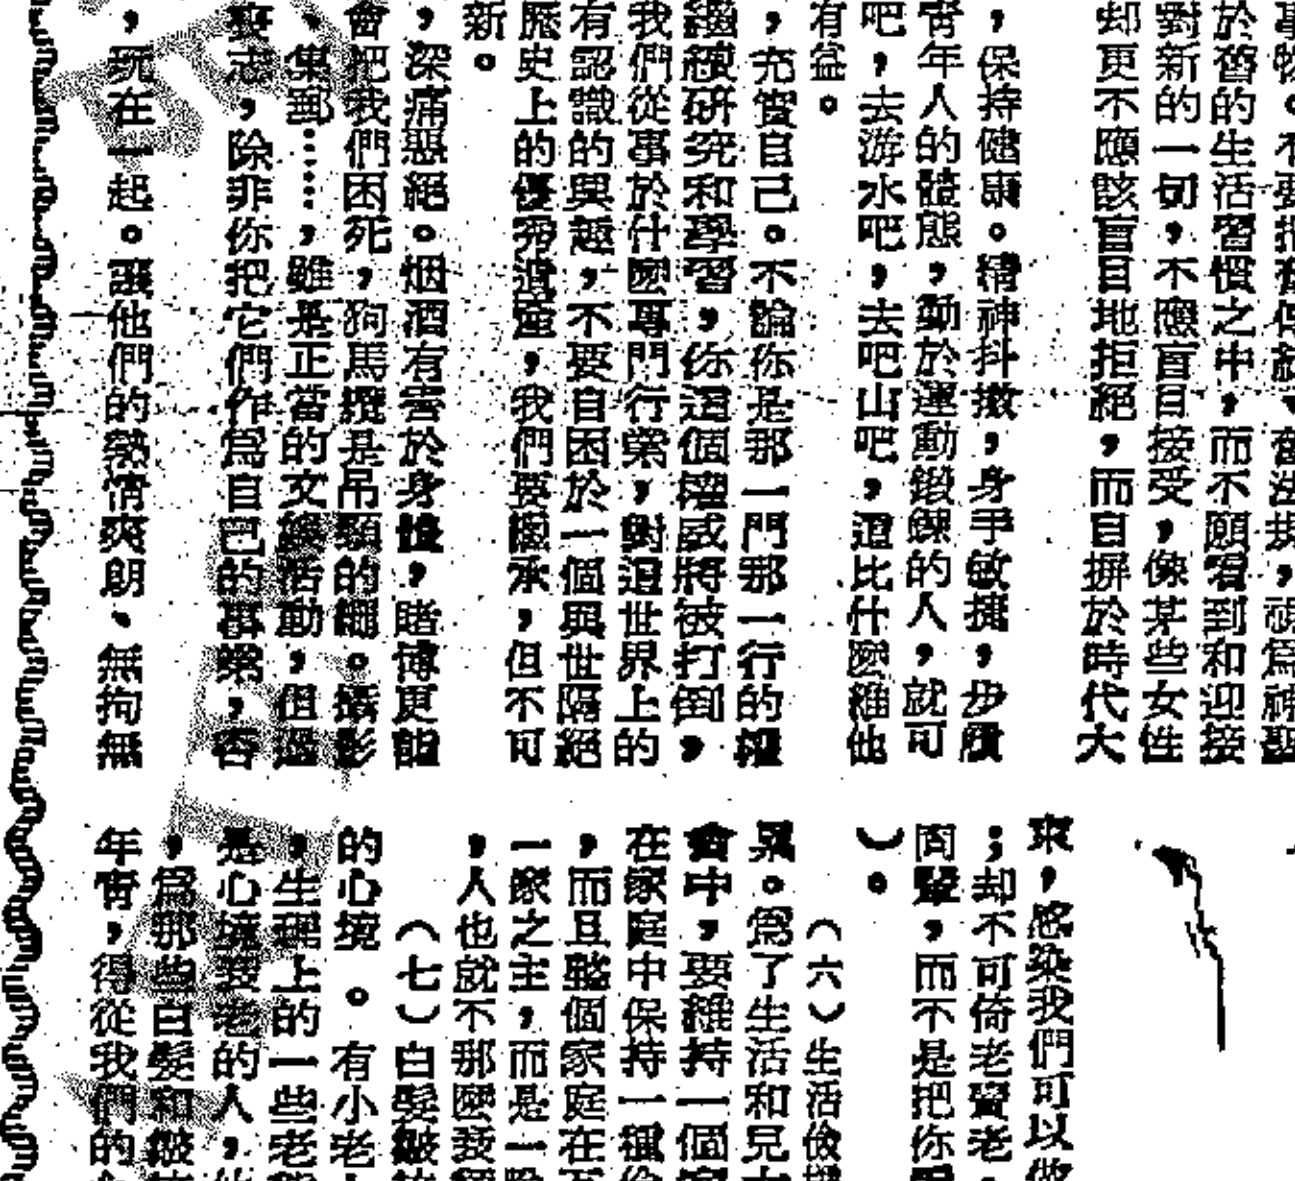 事物。不要把舊
於舊的生活習慣之中，而不願看到和迎接
對新的一切，不應盲目接受，像某些女性
却更不應該盲目地拒絕，而自摒於時代大
，保持健康。精神抖擻，身手敏捷，步履
青年人的體態，勤於運動鍛鍊的人，就可
吧，去游水吧，去吧山吧，這比什麼維他
有益。
，充實自己。不論你是那一門那一行的權
繼續研究和學習，你這個權威將被打倒，
我們從事於什麼專門行業，對這世界上的
有認識的興趣，不要自困於一個與世隔絕
歷史上的優秀遺產，我們要繼承，但不可
新。
，深痛惡絕。烟酒有害於身體，賭博更能
會把我們困死，狗馬攪是吊頸的繩。攝影
、集郵……，雖是正當的文娛活動，但過
喪志，除非你把它們作爲自己的事業，否
，玩在一起。讓他們的熱情爽朗、無拘無
束，感染我們可以做
；却不可倚老賣老
閙聲，而不是把你
）。
（六）生活儉樸
累。爲了生活和兒女
會中，要維持一個家
在家庭中保持一種
，而且整個家庭在
一家之主，而是一
，人也就不那麼衰
（七）白髮皺
的心境 。有小老
，生理上的一些老
是心境衰老的人，
，爲那些白髮和皺
年青，得從我們的